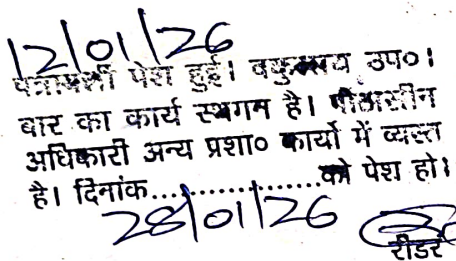 12/01/26
पत्रावली पेश हुई। वकुलाय उप०।
बार का कार्य स्थगन है। पीठासीन
अधिकारी अन्य प्रशा० कार्यो में व्यस्त
है। दिनांक..................को पेश हो।
28/01/26
रीडर